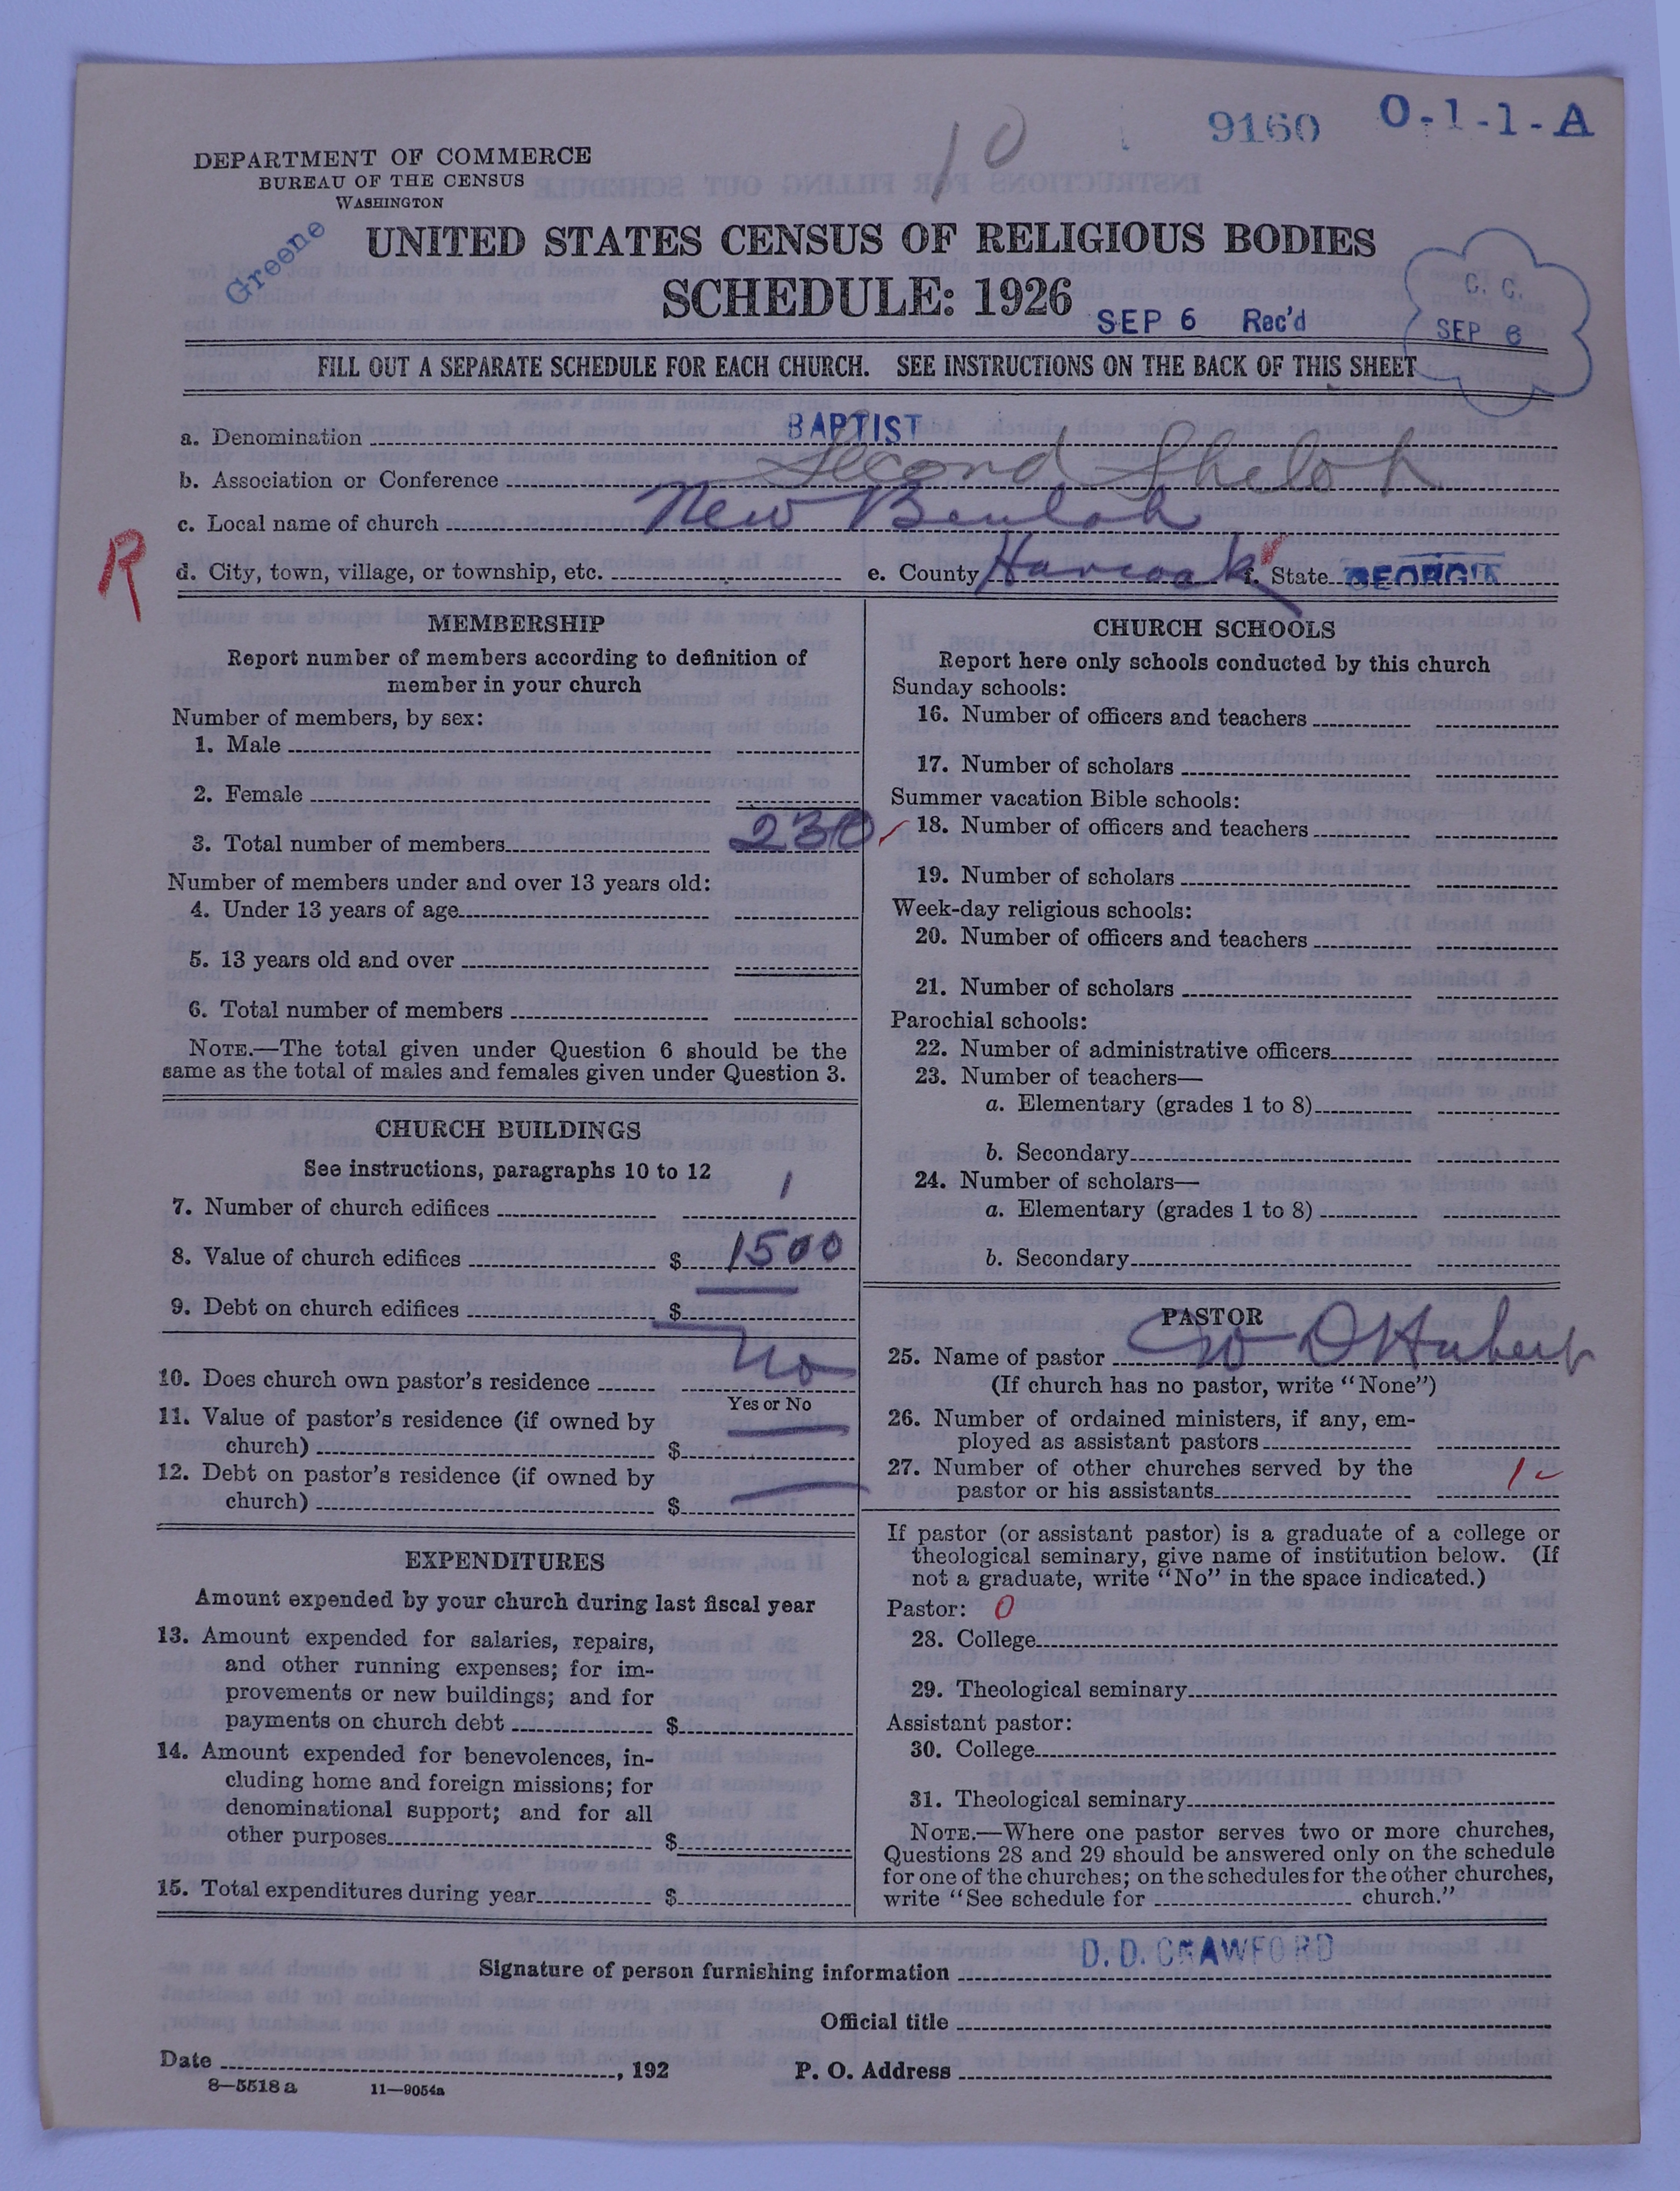 10
9160 0-1-1-A
DEPARTMENT OF COMMERCE
BUREAU OF THE CENSUS
WASHINGTON
Greene
UNITED STATES CENSUS OF RELIGIOUS BODIES
SCHEDULE: 1926
SEP 6 Rec'd
C. C.
SEP 6
FILL OUT A SEPARATE SCHEDULE FOR EACH CHURCH. SEE INSTRUCTIONS ON THE BACK OF THIS SHEET
a. Denomination BAPTIST
b. Association or Conference Second Sheloh
c. Local name of church New Beulah
R
d. City, town, village, or township, etc. e. County Hancock f. State GEORGIA
MEMBERSHIP
Report number of members according to definition of
member in your church
Number of members, by sex:
1. Male
2. Female
3. Total number of members 230
Number of members under and over 13 years old:
4. Under 13 years of age
5. 13 years old and over
6. Total number of members
NOTE.—The total given under Question 6 should be the
same as the total of males and females given under Question 3.
CHURCH BUILDINGS
See instructions, paragraphs 10 to 12
7. Number of church edifices 1
8. Value of church edifices $ 1500
9. Debt on church edifices $
10. Does church own pastor's residence No
Yes or No
11. Value of pastor's residence (if owned by
church) $
12. Debt on pastor's residence (if owned by
church) $
EXPENDITURES
Amount expended by your church during last fiscal year
13. Amount expended for salaries, repairs,
and other running expenses; for im-
provements or new buildings; and for
payments on church debt $
14. Amount expended for benevolences, in-
cluding home and foreign missions; for
denominational support; and for all
other purposes $
15. Total expenditures during year $
CHURCH SCHOOLS
Report here only schools conducted by this church
Sunday schools:
16. Number of officers and teachers
17. Number of scholars
Summer vacation Bible schools:
18. Number of officers and teachers
19. Number of scholars
Week-day religious schools:
20. Number of officers and teachers
21. Number of scholars
Parochial schools:
22. Number of administrative officers
23. Number of teachers—
a. Elementary (grades 1 to 8)
b. Secondary
24. Number of scholars—
a. Elementary (grades 1 to 8)
b. Secondary
PASTOR
25. Name of pastor W D Hubert
(If church has no pastor, write "None")
26. Number of ordained ministers, if any, em-
ployed as assistant pastors
27. Number of other churches served by the
pastor or his assistants 1
If pastor (or assistant pastor) is a graduate of a college or
theological seminary, give name of institution below. (If
not a graduate, write "No" in the space indicated.)
Pastor: 0
28. College
29. Theological seminary
Assistant pastor:
30. College
31. Theological seminary
NOTE.—Where one pastor serves two or more churches,
Questions 28 and 29 should be answered only on the schedule
for one of the churches; on the schedules for the other churches,
write "See schedule for church."
Signature of person furnishing information D. D. CRAWFORD
Official title
Date , 192 P. O. Address
8—5518 a 11—9054a